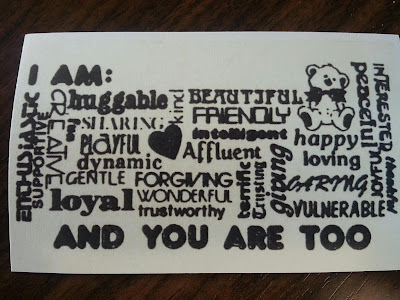 I AM:
ENTHUSIASTIC
SUPPORTIVE
CREATIVE
huggable
SHARING
PLAYFUL
dynamic
GENTLE
loyal
kind
BEAUTIFUL
FRIENDLY
intelligent
Affluent
FORGIVING
WONDERFUL
trustworthy
terrific
Trusting
giving
happy
loving
CARING
VULNERABLE
peaceful
INTERESTED
JOYFUL
AND YOU ARE TOO